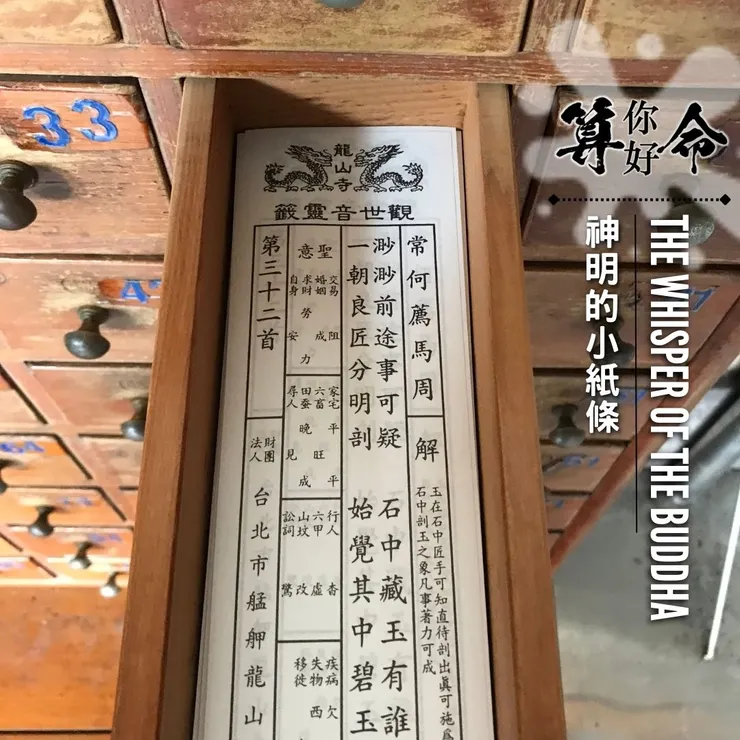 算你好命
神明的小紙條
THE WHISPER OF THE BUDDHA
33
龍山寺
觀世音靈籤
常何薦馬周
解
玉在石中匠手可知直待剖出眞可施爲
石中剖玉之象凡事著力可成
渺渺前途事可疑 石中藏玉有誰
一朝良匠分明剖 始覺其中碧玉
聖意
交易 阻
婚姻 成
求財 勞力
自身 安
家宅 平平
六畜 旺
田蚕 晚成
尋人 見
行人 杳
六甲 虛
山墳 改
訟詞 驚
疾病 欠
失物 西
移徙
第三十二首
財團法人
台北市艋舺龍山